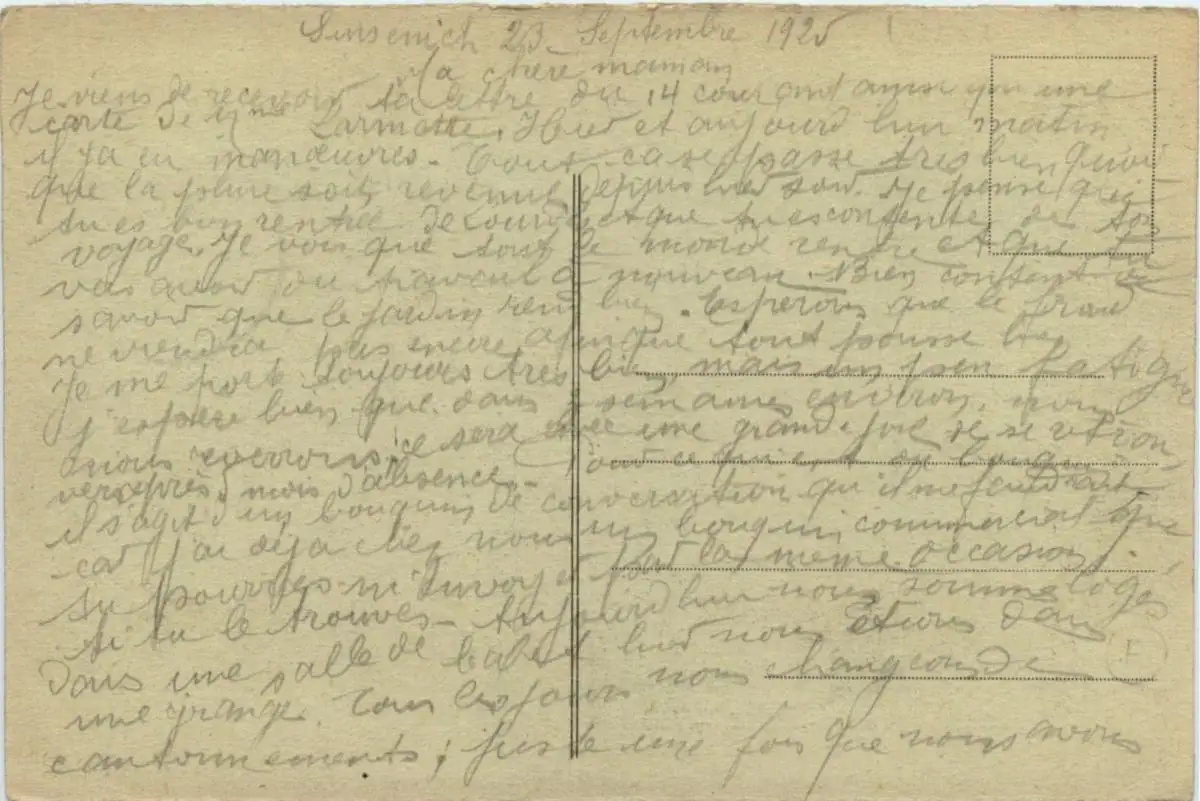 Sinsenich 23 Septembre 1925
Ma chère maman
Je viens de recevoir ta lettre du 14 courant ainsi qu'une
carte de Mme Larmotte. Hier et aujourd'hui matin
il y a eu manœuvres. Tout ca se passe très bien quoi
que la pluie soit revenue depuis hier soir. Je pense que
tu es bien rentrée de et que tu es contente de ton
voyage. Je vois que tout le monde rentre et que tu
vas avoir du travail à nouveau. Bien content de
savoir que le jardin rend bien. Esperons que le froid
ne viendra pas encore afin que tout pousse bien
Je me porte toujours très bien, mais un peu fatigué
j'espère bien que dans semaines environ, nous
nous reverrons; ce sera une grande joie de se retrou
ver après mois d'absence. Pour ce qui est du bouquin
il s'agit d'un bouquin de conversation qu'il me faudrait
car j'ai déjà chez nous un bouquin commercial que
tu pourrais m'envoyer par la même occasion,
si tu le trouves. Aujourd'hui nous sommes logés
dans une salle de bal et hier nous étions dans
une grange. Tous les jours nous changeons de
cantonnements; juste une fois que nous avons